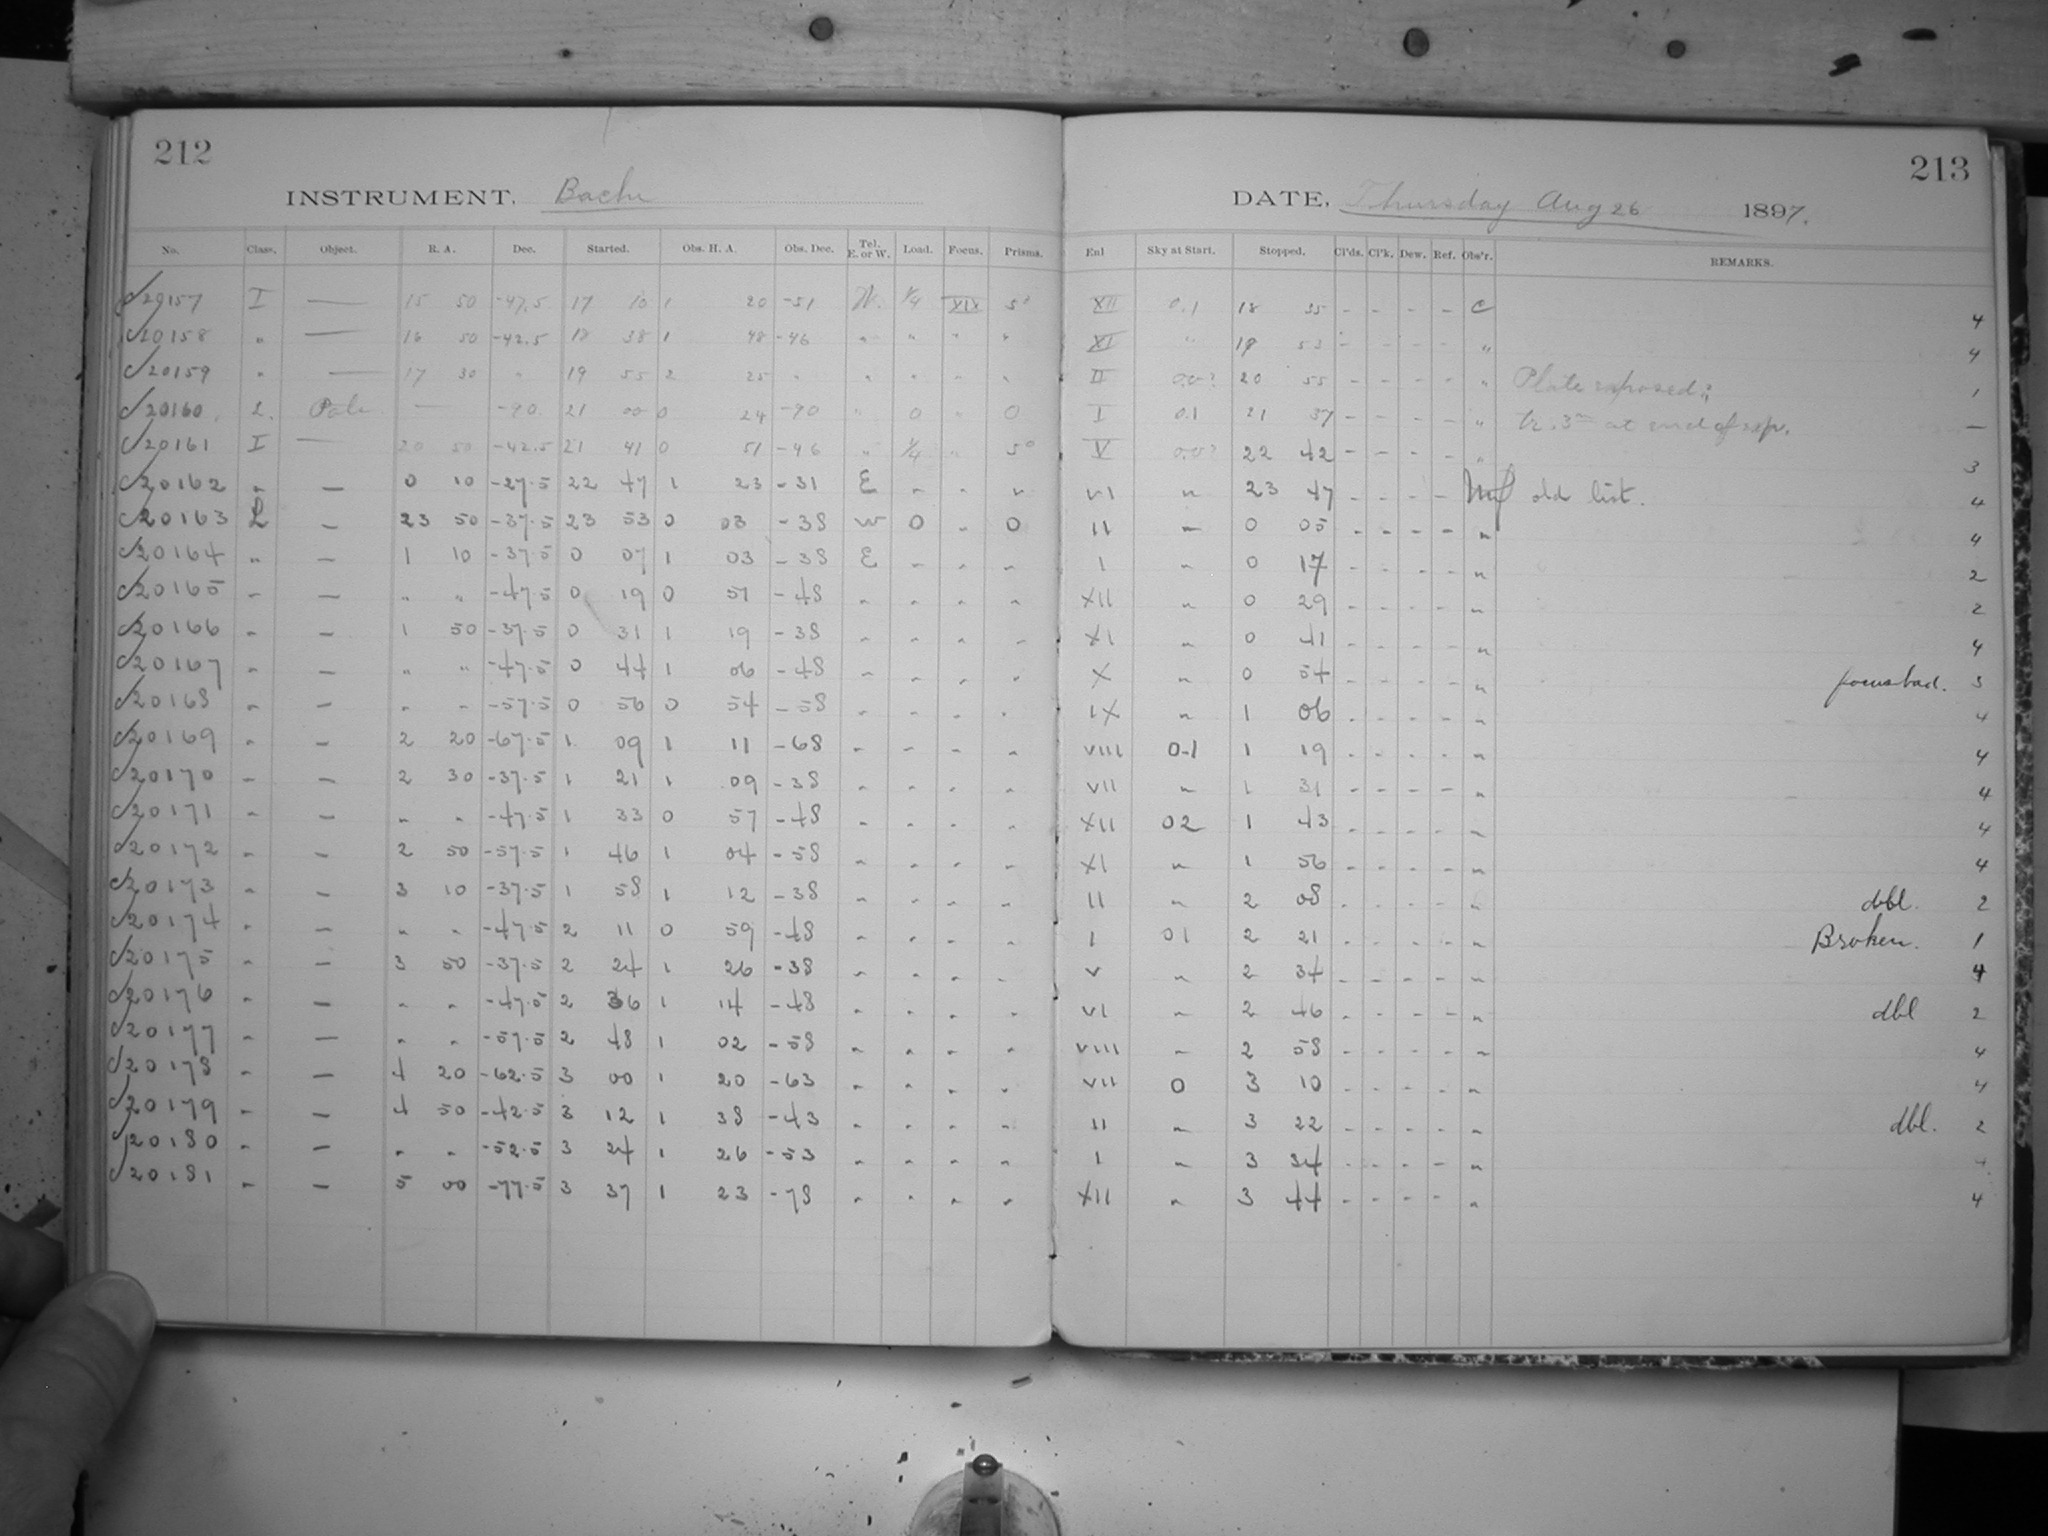 212
INSTRUMENT. Bache
No. Class. Object. R. A. Dec. Started. Obs. H. A. Obs. Dec. Tel. E. or W. Load. Focus. Prisms.
20157 I — 15 50 -47.5 17 10 1 20 -51 W. 1/4 XIX 5°
20158 " — 16 50 -42.5 18 38 1 48 -46 " " " "
20159 " — 17 30 " 19 55 2 25 " " " " "
20160 L. Pole — -90 21 00 0 24 -90 " 0 " 0
20161 I — 20 50 -42.5 21 41 0 51 -46 " 1/4 " 5°
20162 " — 0 10 -27.5 22 47 1 23 -31 E " " "
20163 L — 23 50 -37.5 23 53 0 03 -38 W 0 " 0
20164 " — 1 10 -37.5 0 07 1 03 -38 E " " "
20165 " — " " -47.5 0 19 0 51 -48 " " " "
20166 " — 1 50 -37.5 0 31 1 19 -38 " " " "
20167 " — " " -47.5 0 44 1 06 -48 " " " "
20168 " — " " -57.5 0 56 0 54 -58 " " " "
20169 " — 2 20 -67.5 1 09 1 11 -68 " " " "
20170 " — 2 30 -37.5 1 21 1 09 -38 " " " "
20171 " — " " -47.5 1 33 0 57 -48 " " " "
20172 " — 2 50 -57.5 1 46 1 04 -58 " " " "
20173 " — 3 10 -37.5 1 58 1 12 -38 " " " "
20174 " — " " -47.5 2 11 0 59 -48 " " " "
20175 " — 3 50 -37.5 2 24 1 26 -38 " " " "
20176 " — " " -47.5 2 36 1 14 -48 " " " "
20177 " — " " -57.5 2 48 1 02 -58 " " " "
20178 " — 4 20 -62.5 3 00 1 20 -63 " " " "
20179 " — 4 50 -42.5 3 12 1 38 -43 " " " "
20180 " — " " -52.5 3 24 1 26 -53 " " " "
20181 " — 5 00 -77.5 3 37 1 23 -78 " " " "
213
DATE, Thursday Aug 26 1897.
Enl Sky at Start. Stopped. Cl'ds. Cl'k. Dew. Ref. Obs'r. REMARKS.
XII 0.1 18 35 - - - - C 4
XI " 19 53 - - - - " 4
II 0.0? 20 55 - - - - " Plate exposed 1
I 0.1 21 37 - - - - " tr. 3m at end of exp. —
V 0.0? 22 42 - - - - " 3
VI " 23 47 - - - - old list. 4
II " 0 05 - - - - " 4
I " 0 17 - - - - " 2
XII " 0 29 - - - - " 2
XI " 0 41 - - - - " 4
X " 0 54 - - - - " focus bad. 3
IX " 1 06 - - - - " 4
VIII 0.1 1 19 - - - - " 4
VII " 1 31 - - - - " 4
XII 02 1 43 - - - - " 4
XI " 1 56 - - - - " 4
II " 2 08 - - - - " dbl. 2
I 01 2 21 - - - - " Broken. 1
V " 2 34 - - - - " 4
VI " 2 46 - - - - " dbl 2
VIII " 2 58 - - - - " 4
VII 0 3 10 - - - - " 4
II " 3 22 - - - - " dbl. 2
I " 3 34 - - - - " 4
XII " 3 44 - - - - " 4